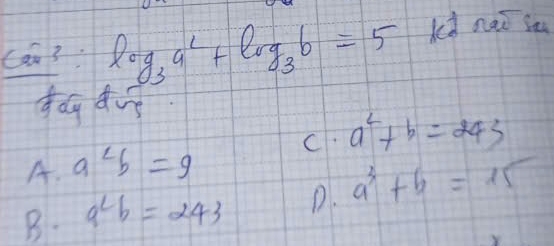 Câu 3: log₃a² + log₃b = 5 kđ nào sau
đây đúng.
A. a²b = 9
C. a² + b = 243
B. a²b = 243
D. a³ + b = 15